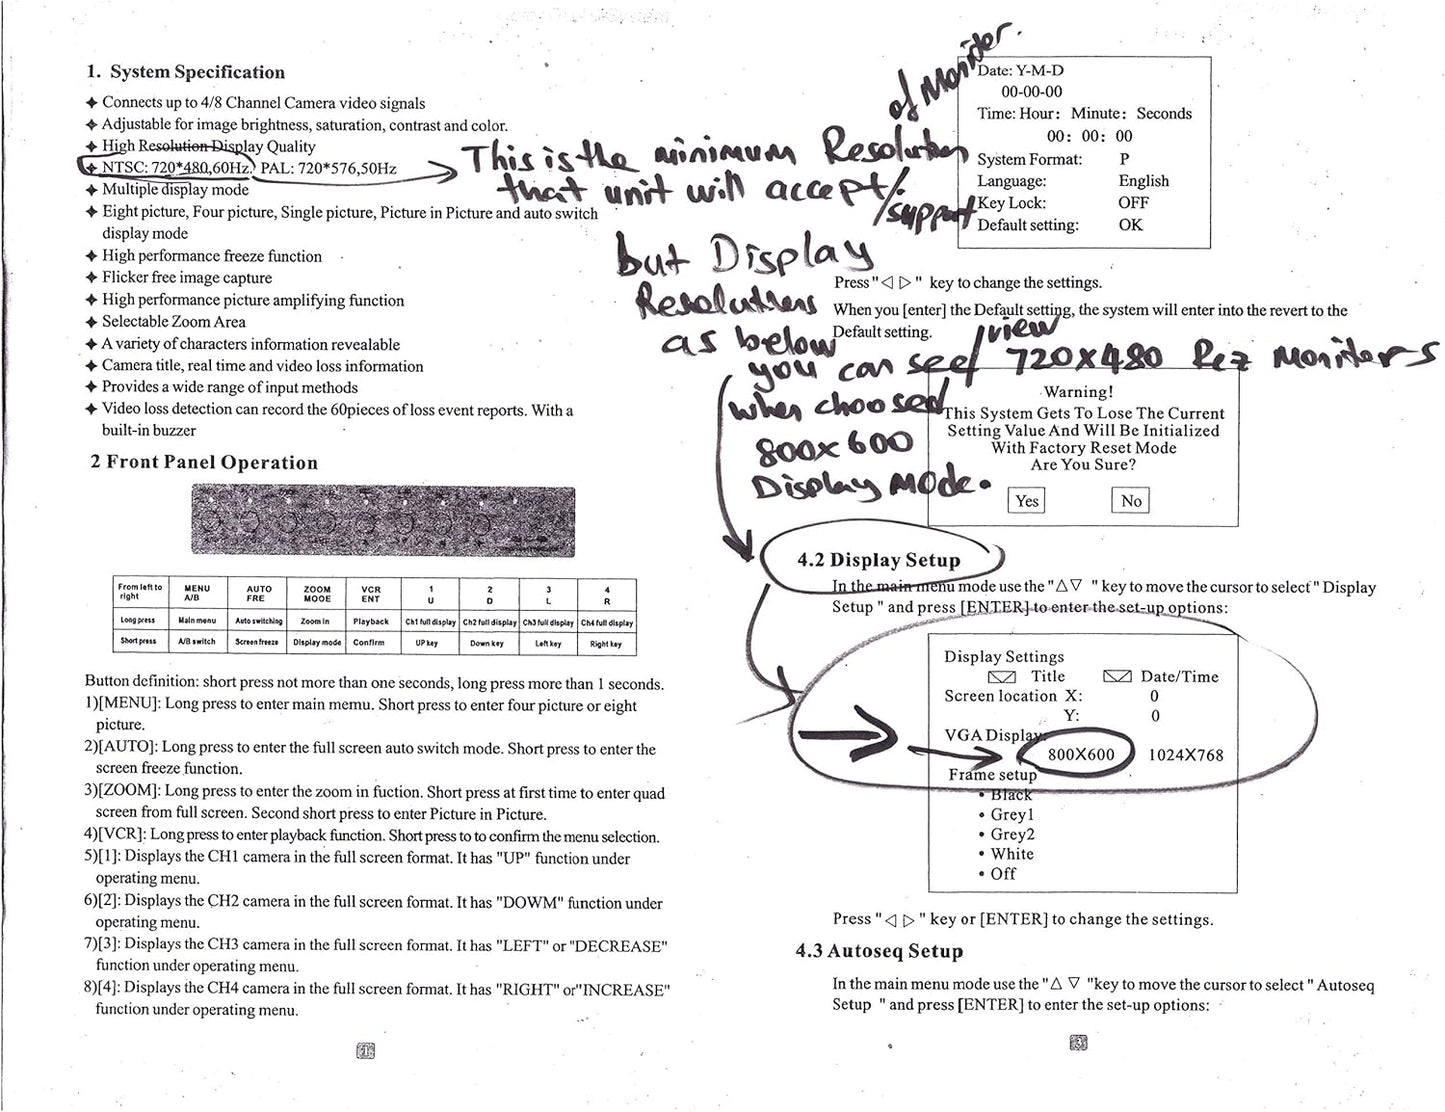 1. System Specification
✦ Connects up to 4/8 Channel Camera video signals
✦ Adjustable for image brightness, saturation, contrast and color.
✦ High Resolution Display Quality
✦ NTSC: 720*480,60Hz. PAL: 720*576,50Hz
✦ Multiple display mode
✦ Eight picture, Four picture, Single picture, Picture in Picture and auto switch
display mode
✦ High performance freeze function
✦ Flicker free image capture
✦ High performance picture amplifying function
✦ Selectable Zoom Area
✦ A variety of characters information revealable
✦ Camera title, real time and video loss information
✦ Provides a wide range of input methods
✦ Video loss detection can record the 60pieces of loss event reports. With a
built-in buzzer
2 Front Panel Operation
From left to right MENU A/B AUTO FRE ZOOM MOOE VCR ENT 1 U 2 D 3 L 4 R
Long press Main menu Auto switching Zoom in Playback Ch1 full display Ch2 full display Ch3 full display Ch4 full display
Short press A/B switch Screen freeze Display mode Confirm UP key Down key Left key Right key
Button definition: short press not more than one seconds, long press more than 1 seconds.
1)[MENU]: Long press to enter main memu. Short press to enter four picture or eight
picture.
2)[AUTO]: Long press to enter the full screen auto switch mode. Short press to enter the
screen freeze function.
3)[ZOOM]: Long press to enter the zoom in fuction. Short press at first time to enter quad
screen from full screen. Second short press to enter Picture in Picture.
4)[VCR]: Long press to enter playback function. Short press to to confirm the menu selection.
5)[1]: Displays the CH1 camera in the full screen format. It has "UP" function under
operating menu.
6)[2]: Displays the CH2 camera in the full screen format. It has "DOWM" function under
operating menu.
7)[3]: Displays the CH3 camera in the full screen format. It has "LEFT" or "DECREASE"
function under operating menu.
8)[4]: Displays the CH4 camera in the full screen format. It has "RIGHT" or"INCREASE"
function under operating menu.
1
This is the minimum Resolution
of Moniter.
that unit will accept/.
support
but Display
Resolutions
as below
you can see/
view
720X480 Rez Moniters
when choosed
800x600
Display Mode.
Date: Y-M-D
00-00-00
Time: Hour: Minute: Seconds
00: 00: 00
System Format: P
Language: English
Key Lock: OFF
Default setting: OK
Press "◁ ▷ " key to change the settings.
When you [enter] the Default setting, the system will enter into the revert to the
Default setting.
Warning!
This System Gets To Lose The Current
Setting Value And Will Be Initialized
With Factory Reset Mode
Are You Sure?
Yes No
4.2 Display Setup
In the main menu mode use the "△ ▽ " key to move the cursor to select " Display
Setup " and press [ENTER] to enter the set-up options:
Display Settings
Title Date/Time
Screen location X: 0
Y: 0
VGA Display:
800X600 1024X768
Frame setup
• Black
• Grey1
• Grey2
• White
• Off
Press "◁ ▷ " key or [ENTER] to change the settings.
4.3 Autoseq Setup
In the main menu mode use the "△ ▽ "key to move the cursor to select " Autoseq
Setup " and press [ENTER] to enter the set-up options:
3